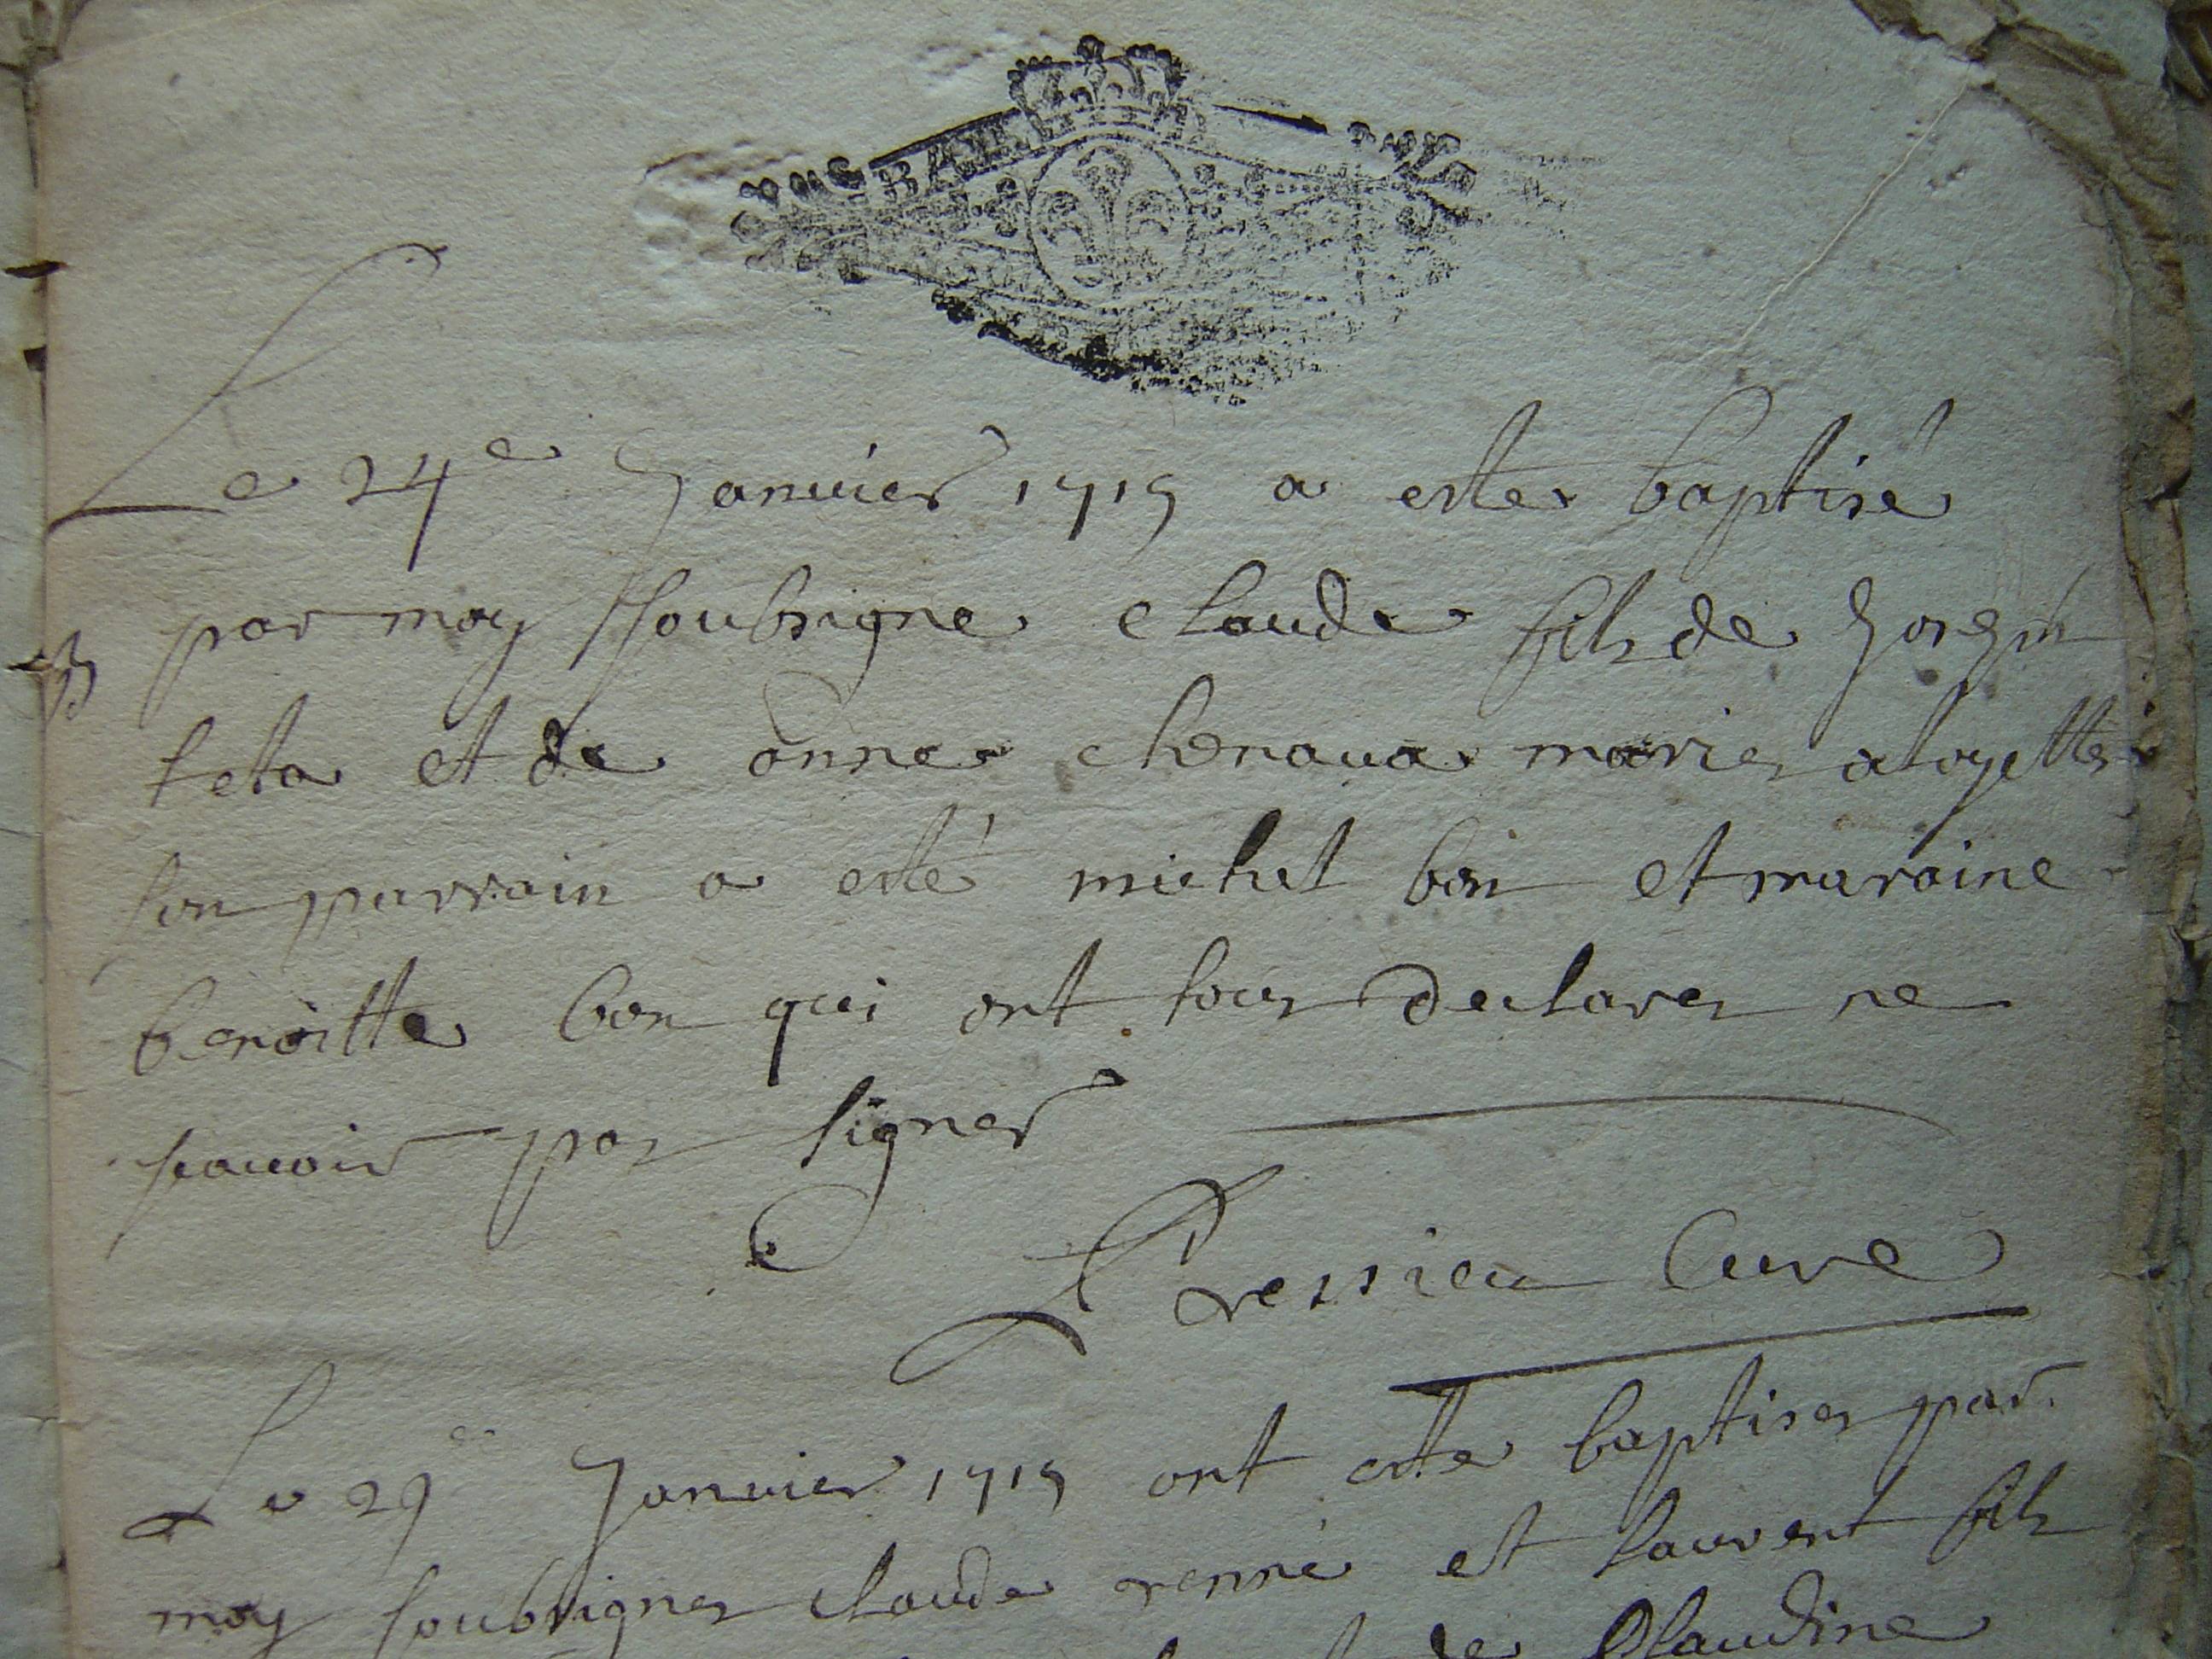 Le 24e Janvier 1719 a este baptisé
par moy soubsigne claude fils de Joseph
teta et de anne chenaua maries a loyettes
son parrain a esté michel bon et maraine
benoitte bon qui ont tous declares ne
scavoir pas signer
Pressieu Cure
Le 29e Janvier 1719 ont este baptises par
moy soubsignes claude renné et laurent fils
de Claudine